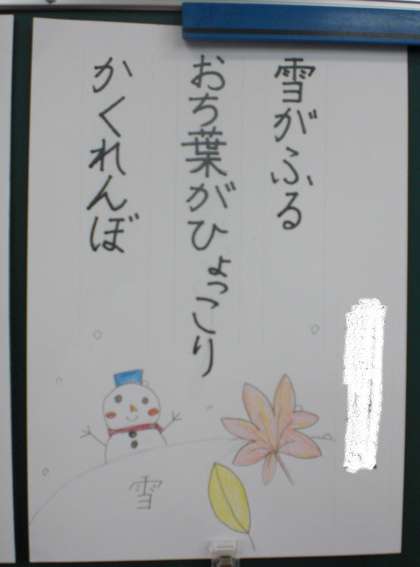 雪がふる
おち葉がひょっこり
かくれんぼ
雪